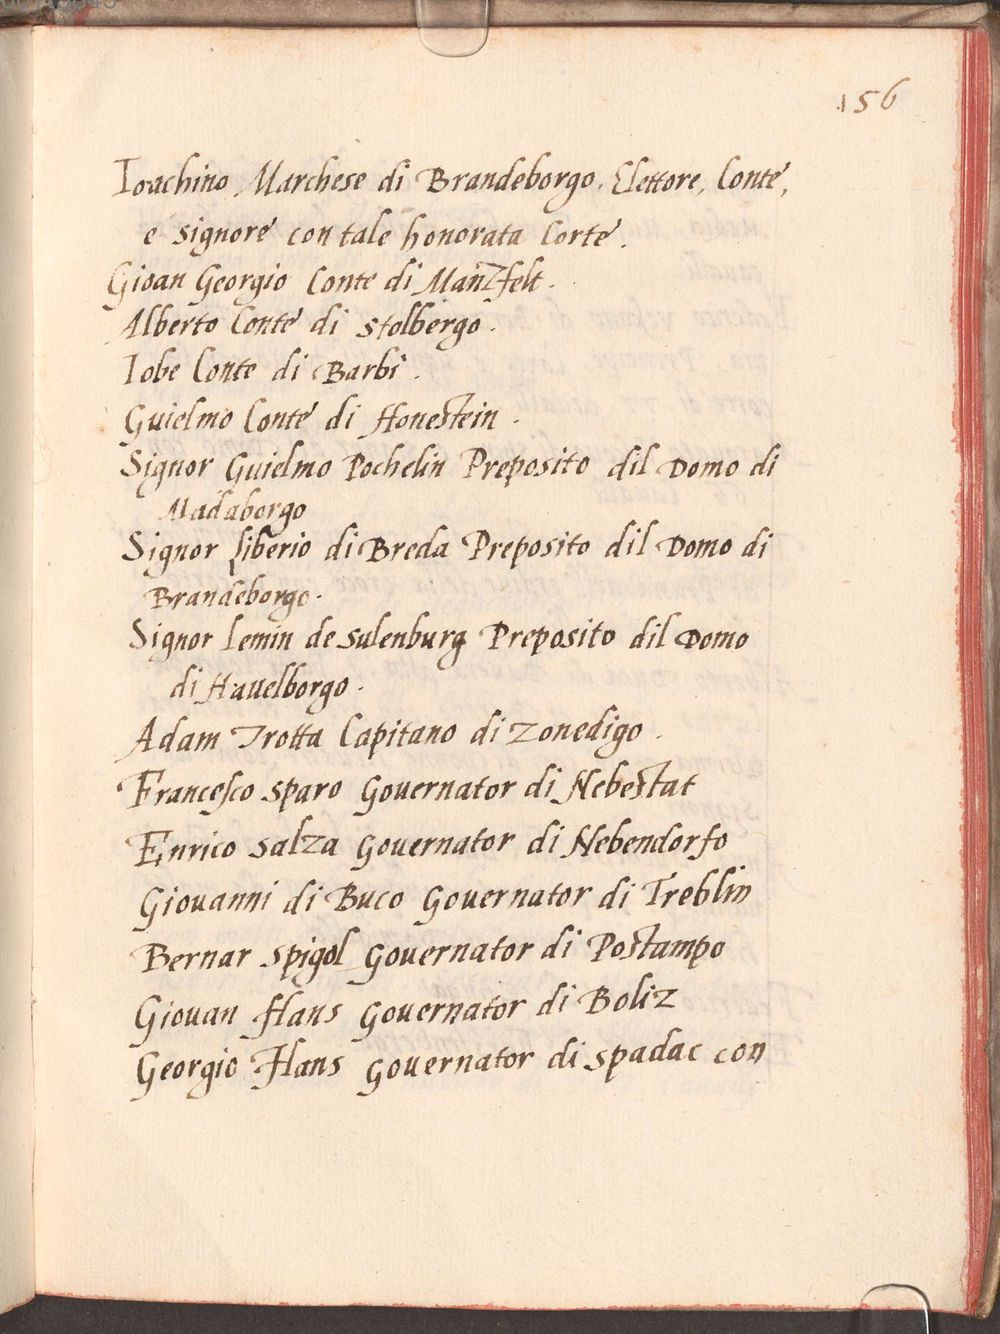 156
Ioachino Marchese di Brandeborgo, Elettore, Conte,
e signore con tale honorata Corte.
Gioan Georgio Conte di Manzfelt.
Alberto Conte di Stolbergo.
Iobe Conte di Barbi.
Guielmo Conte di Honestein.
Signor Guielmo Pochelin Preposito dil Domo di
Madaborgo
Signor Liberio di Breda Preposito dil Domo di
Brandeborgo.
Signor Lemin de Sulenburg Preposito dil Domo
di Hauelborgo.
Adam Trotta Capitano di Zonedigo.
Francesco Sparo Gouernator di Nebestat
Enrico Salza Gouernator di Nebendorfo
Giouanni di Buco Gouernator di Treblin
Bernar Spigol Gouernator di Postampo
Giouan Hans Gouernator di Boliz
Georgio Hans Gouernator di Spadac con